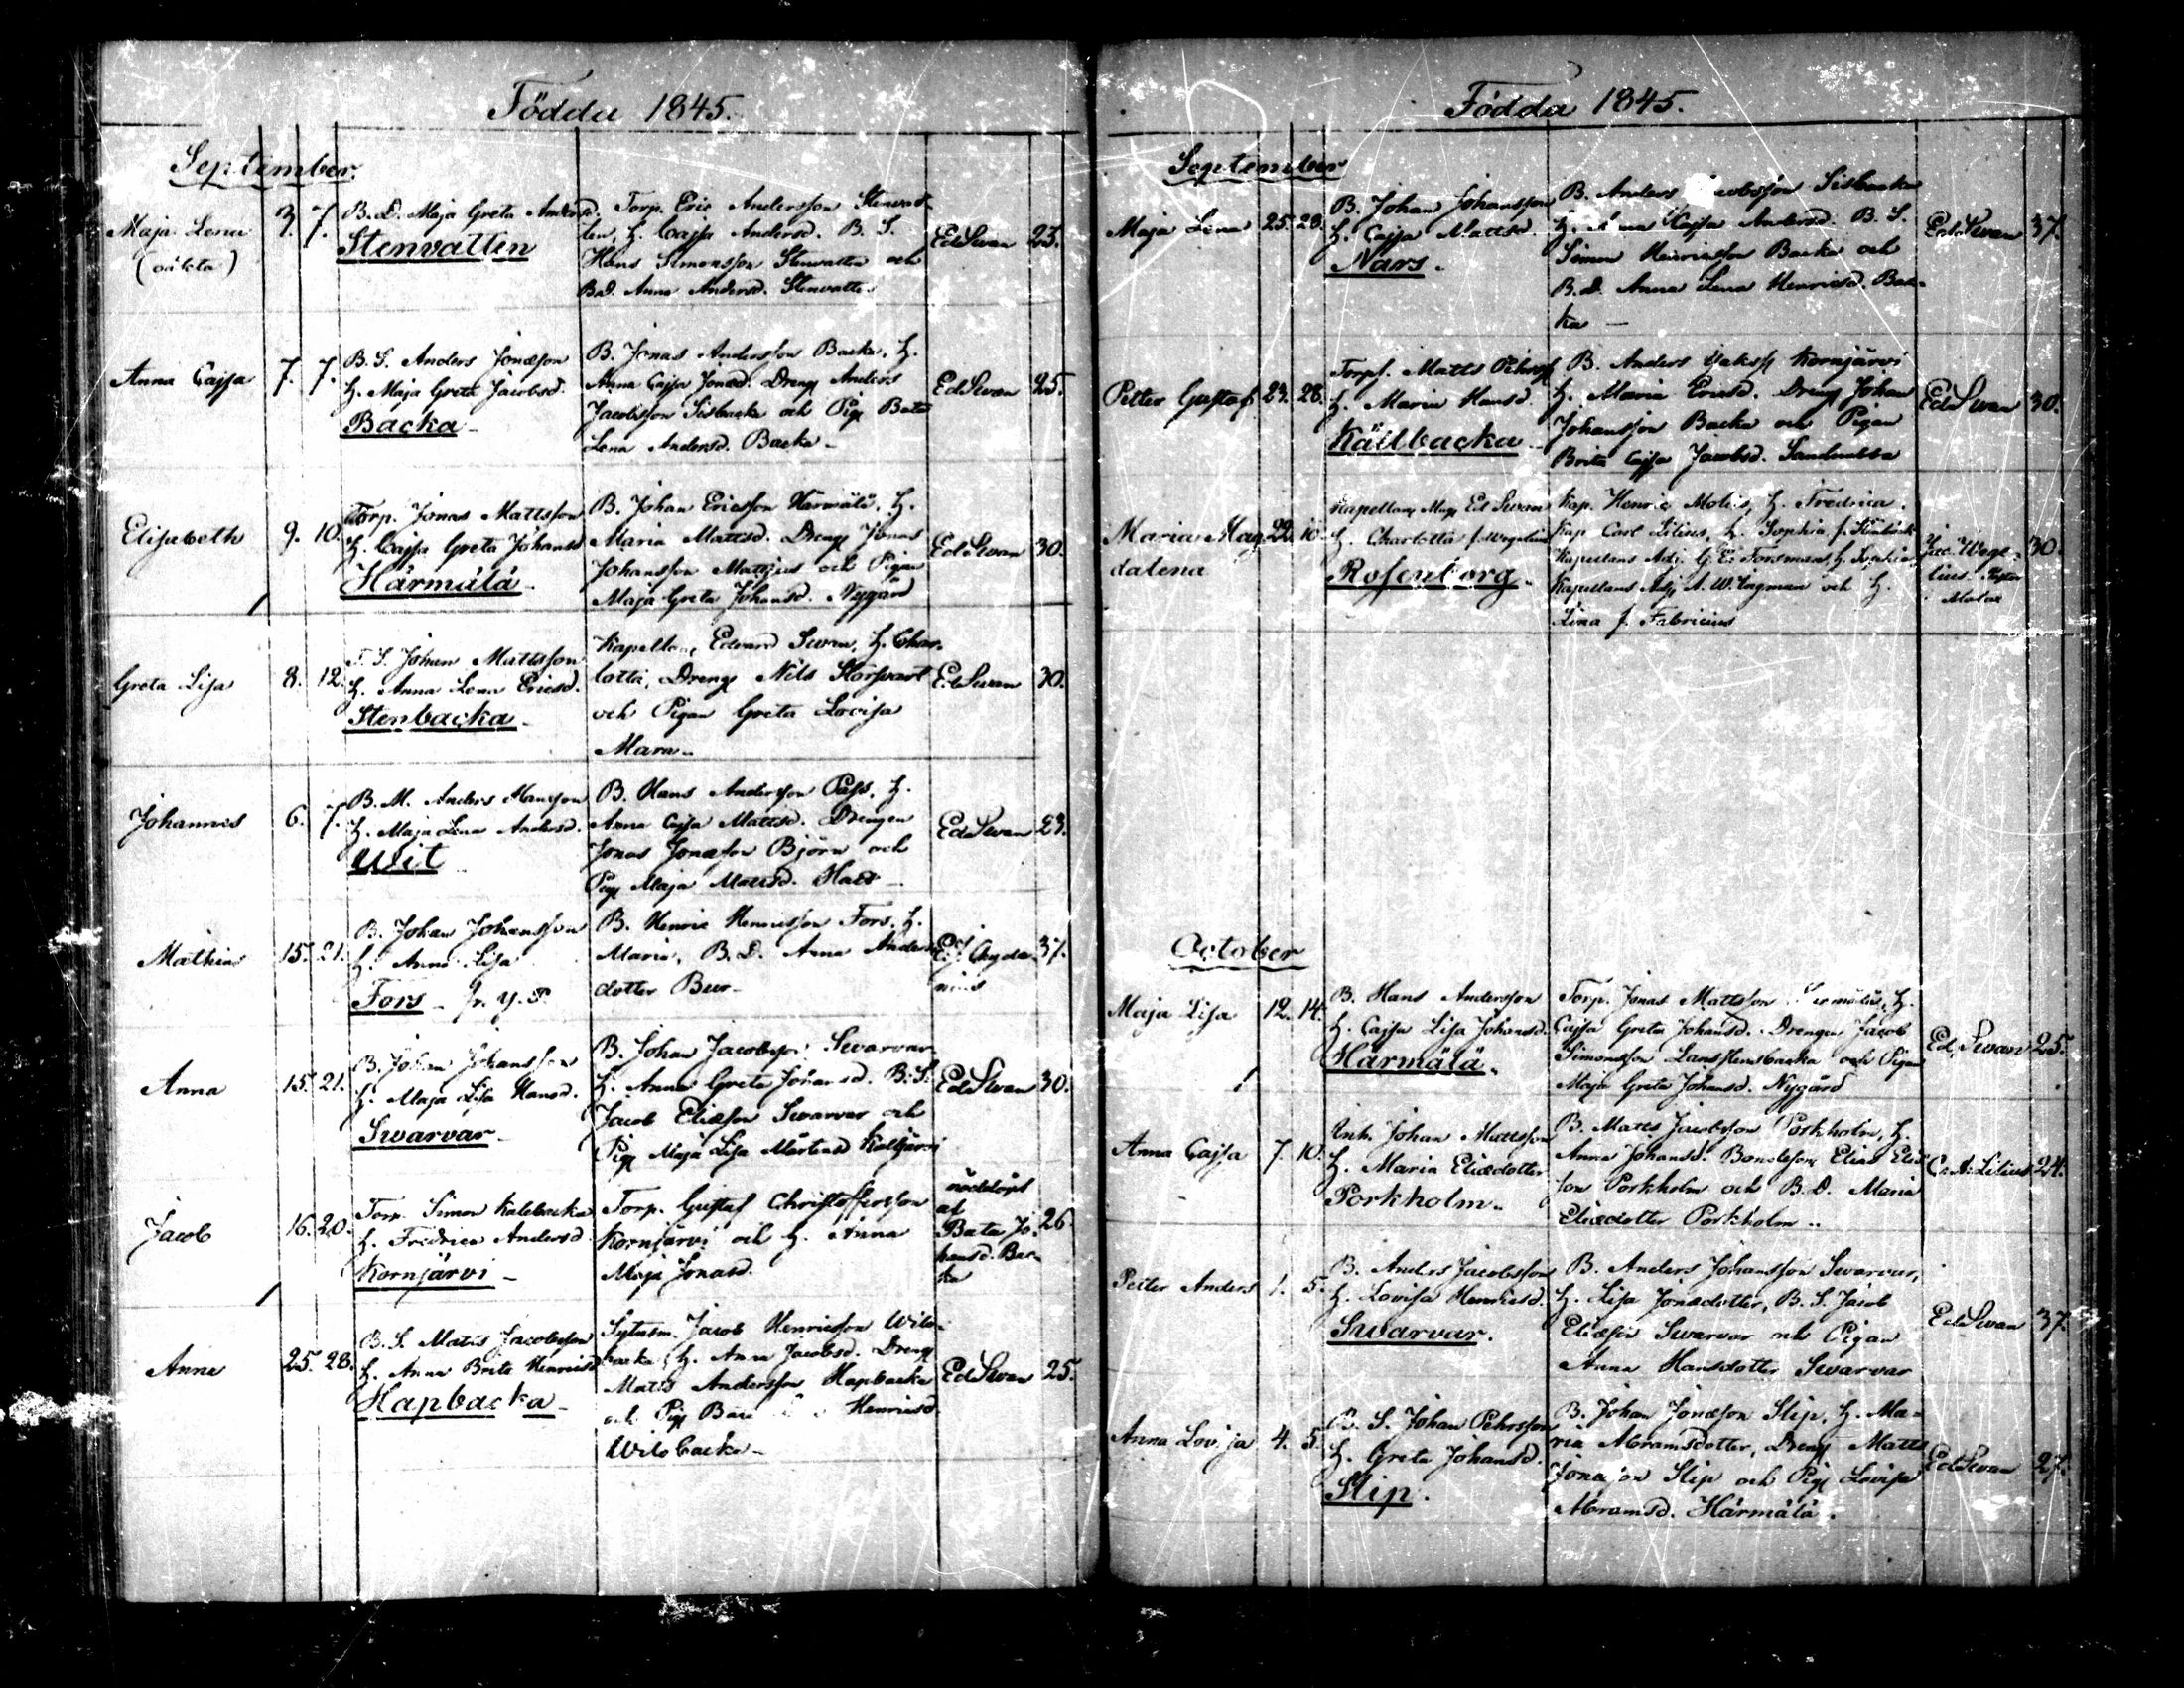 Födda 1845.
September.
Maja Lena
(oäkta)
3. 7.
B. D. Maja Greta Andersd.
Stenvatten
Torp. Eric Andersson Stenvat-
ten, h. Cajsa Andersd. B. S.
Hans Simonsson Stenvatten och
B.D. Anna Andersd. Stenvatten
Ed Svan 23.
Anna Cajsa 7. 7.
B. S. Anders Jonasson
h. Maja Greta Jacobsd.
Backa
B. Jonas Andersson Backa, h.
Anna Cajsa Jonasd. Dreng Anders
Jacobsson Sisbacka och Pig. Beata
Lena Andersd. Backa
Ed Svan 25.
Elisabeth 9. 10.
Torp. Jonas Mattsson
h. Cajsa Greta Johansd
Härmälä
B. Johan Ericsson Härmälä, h.
Maria Mattsd. Dreng Jonas
Johansson Mattjus och Pigan
Maja Greta Johansd. Nygård
Ed Svan 30.
Greta Lisa 8. 12.
T. S. Johan Mattsson
h. Anna Lena Ericsd.
Stenbacka
Kapellan, Edvard Svan, h. Char-
lotta, Dreng Nils Storsvart
och Pigan Greta Lovisa
Mara
Ed Svan 30.
Johannes 6. 7.
B. M. Anders Hansson
h. Maja Lena Andersd.
Wit
B. Hans Andersson Pass, h.
Anna Cajsa Mattsd. Drengen
Jonas Jonasson Björn och
Pig. Maja Mattsd.
Ed Svan 23.
Mathias 15. 21.
B. Johan Johansson
h. Anna Lisa
Fors
B. Henric Henricsson Fors, h.
Maria, B. D. Anna Anders
dotter Bur
37.
Anna 15. 21.
B. Johan Johansson
h. Maja Lisa Hansd.
Swarvar
B. Johan Jacobsson Swarvar
h. Anna Greta Johansd. B. S.
Jacob Eliasson Swarvar och
Pig. Maja Lisa Mårtensd Kaltjärvi
Ed Svan 30.
Jacob 16. 20.
Torp. Simon Kalebacka
h. Fredrica Andersd
Kornjärvi
Torp. Gustaf Christoffersson
Kornjärvi och h. Anna
Maja Jonasd.
nöddöpt
af
Beata Jo-
hansd. Bac-
ka
26.
Anna 25. 28.
B. S. Matts Jacobsson
h. Anna Brita Henricsd
Hapbacka
Sytnsm. Jacob Henricsson Wits-
backa, h. Anna Jacobsd. Dreng
Matts Andersson Hapbacka
och Pig. Henricsd
Witsbacka
Ed Svan 25.
Födda 1845.
September
Maja Lena 25. 28.
B. Johan Johansson
h. Cajsa Mattsd.
Nars.
B. Anders Jacobsson Sisbacka
h. Anna Cajsa Andersd. B. S.
Simon Henricsson Backa och
B. D. Anna Lena Henricsd. Bac-
ka
Ed Svan 37.
Petter Gustaf 23. 28.
Torp. Matts Pehrss
h. Maria Hansd.
Källbacka
B. Anders Kornjärvi
h. Maria Ericsd. Dreng Johan
Johansson Backa och Pigan
Brita Cajsa Jacobsd.
Ed Svan 30.
Maria Mag-
dalena
22. 10.
Kapellan, Mag. Ed Svan
h. Charlotta f. Wegelius
Rosenborg.
Kap. Henric Moliis, h. Fredrica.
Kap Carl Lilius, h. Sophia f.
Kapellans Adj. G. E. Forsman, h. Sophia,
Kapellans Adj. A. W. Ingman och h.
Lina f. Fabricius
Jac. Wege-
lius. Pastor
Malax
30.
October
Maja Lisa 12. 14.
B. Hans Andersson
h. Cajsa Lisa Johansd.
Härmälä.
Torp. Jonas Mattsson Härmälä, h.
Cajsa Greta Johansd. Drengen Jacob
Simonsson Lansstensbacka och Pigan
Maja Greta Johansd. Nygård
Ed, Svan 25.
Anna Cajsa 7. 10.
Inh. Johan Mattsson
h. Maria Eliædotter
Porkholm.
B. Matts Jacobsson Porkholm, h.
Anna Johansd. Bondeson, Elias Elias-
son Porkholm och B. D. Maria
Eliædotter Porkholm
C. A. Lilius 24.
Petter Anders 1. 5.
B. Anders Jacobsson
h. Lovisa Henricsd.
Swarvar.
B. Anders Johansson Swarvar,
h. Lisa Jonædotter, B. S. Jacob
Eliasson Swarvar och Pigan
Anna Hansdotter Swarvar
Ed Svan 37.
Anna Lovisa 4. 5.
B. S. Johan Pehrsson
h. Greta Johansd.
Slip.
B. Johan Jonæson Slip, h. Ma-
ria Abramsdotter, Dreng Matts
Jonæson Slip och Pig. Lovisa
Abramsd. Härmälä.
Ed Svan 27.